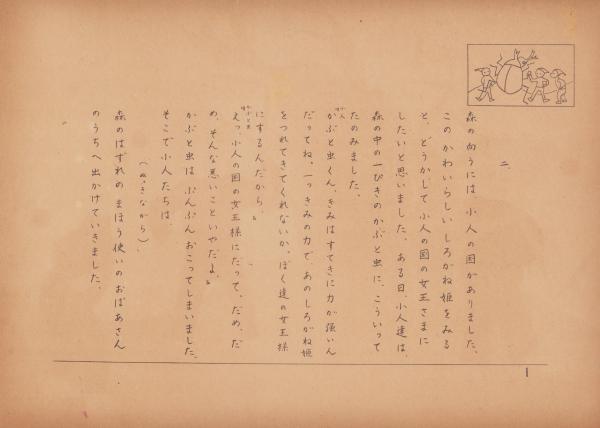 二、
森の向うには、小人の国がありました。
このかわいらしいしろがね姫をみる
と、どうかして小人の国の女王さまに
したいと思いました。ある日、小人達は、
森の中の一ぴきのかぶと虫に、こういって
たのみました。
小人
かぶと虫くん、きみはすてきに力が強いん
だってね。一つきみの力で、あのしろがね姫
をつれてきてくれないか。ぼく達の女王様
にするんだから。」
かぶと虫
えっ、小人の国の女王様にだって、だめ、だ
め、そんな悪いこといやだよ。」
かぶと虫は、ぷんぷんおこってしまいました。
そこで小人たちは、
(ぬきながら)
森のはずれのまほう使いのおばあさん
のうちへ出かけていきました。
1